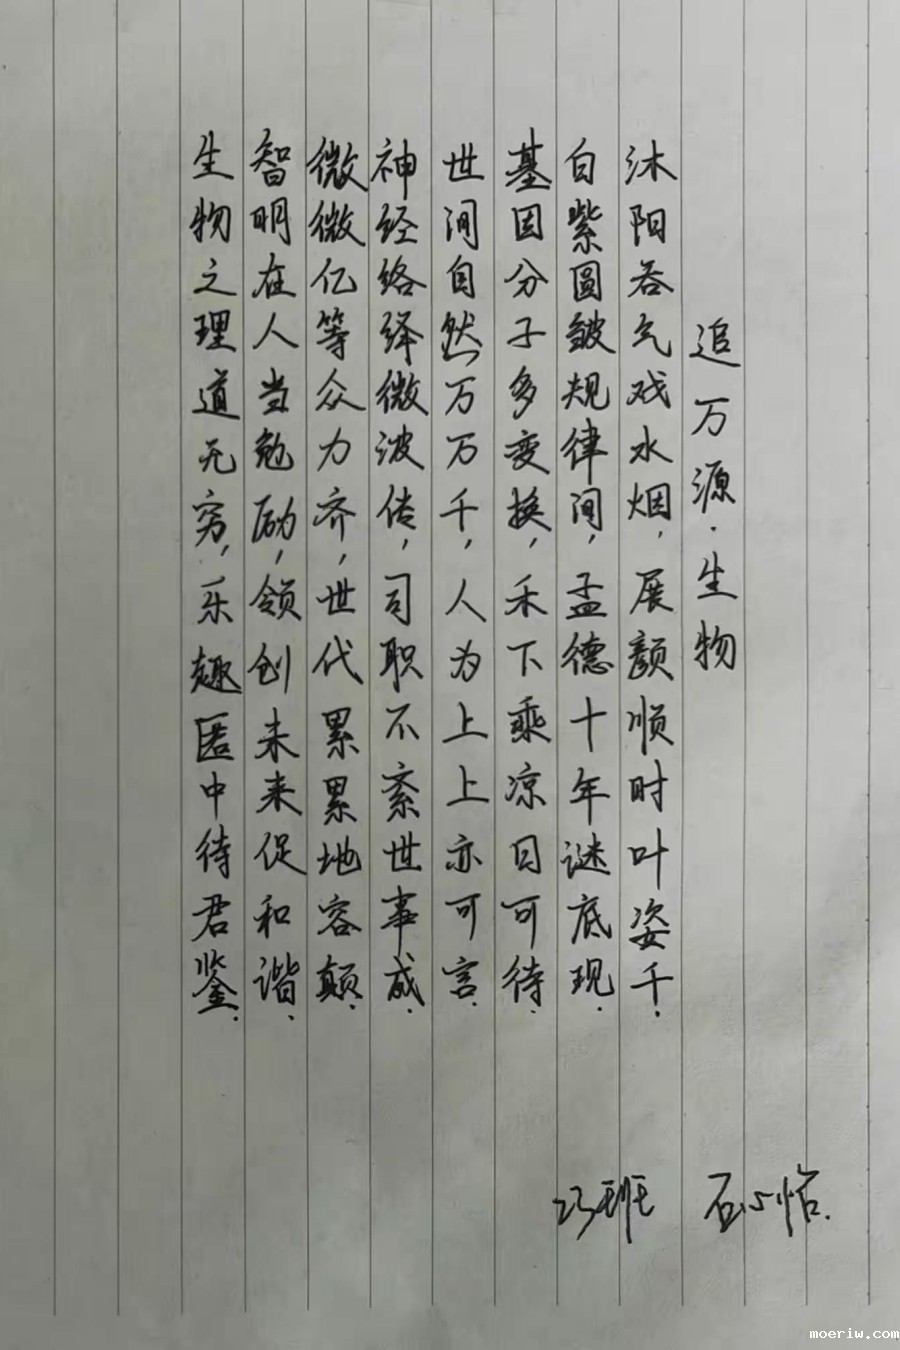 追万源·生物
沐阳吞气戏水烟,展颜顺时叶姿千.
白紫圆皱规律间,孟德十年谜底现.
基因分子多变换,禾下乘凉日可待.
世间自然万万千,人为上上亦可言.
神经络绎微波传,司职不紊世事成.
微微亿等众力齐,世代累累地容颠.
智明在人当勉励,领创未来促和谐.
生物之理道无穷,乐趣匿中待君鉴.
班 石心怡.
moeriw.com